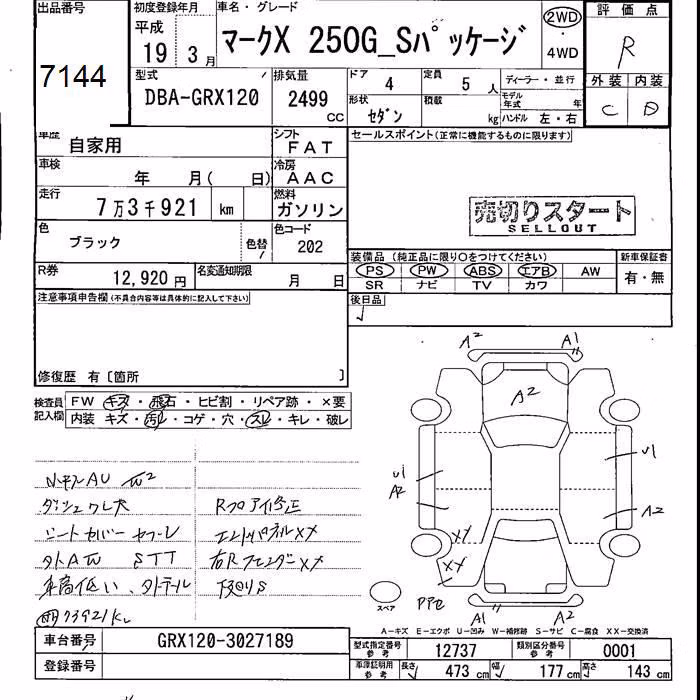 出品番号
7144
初度登録年月
平成
19年 3月
車名・グレード
マークX 250G_Sパッケージ
2WD
・
4WD
評価点
R
外装 内装
C D
型式
DBA-GRX120
排気量
2499
CC
ドア 4
定員 5 人
ディーラー・並行
形状 セダン
積載 kg
モデル年式 年
ハンドル 左・右
車歴 自家用
シフト FAT
セールスポイント(正常に機能するものに限ります)
車検 年 月( 日)
冷房 AAC
走行 7万3千921 km
燃料 ガソリン
売切りスタート
SELLOUT
色 ブラック
色替 /
色コード 202
装備品 (純正品に限り○をつけてください)
新車保証書
PS PW ABS エアB AW
有・無
SR ナビ TV カワ
R券 12,920円
名変通知期限 月 日
後日品
注意事項申告欄(不具合内容等は具体的に記入して下さい)
修復歴 有〔箇所 〕
検査員記入欄
FW キズ・飛石・ヒビ割・リペア跡・×要
内装 キズ・汚れ・コゲ・穴・スレ・キレ・破レ
A2 A1
A2
U1
A2
U1
A2
XX
XX
A1 A2
スペア
ダッシュワレ大
シートカバー
STT
車高低い、
73921km
エントパネルXX
右RフェンダーXX
下廻りS
A-キズ E-エクボ U-凹み W-補修跡 S-サビ C-腐食 XX-交換済
車台番号 GRX120-3027189
登録番号
型式指定番号 参考 12737
類別区分番号 参考 0001
車庫証明用 参考 長さ 473 cm 幅 177 cm 高さ 143 cm